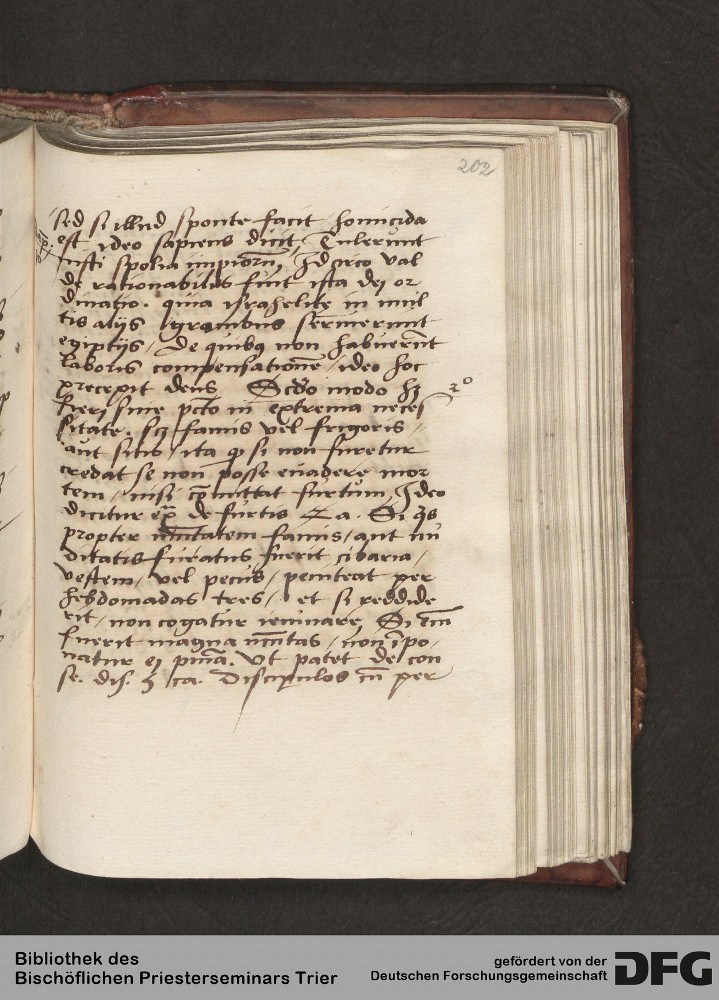 202
sed si illud sponte facit homicida
est ideo sapiens dicit Tulerunt
iusti spolia impiorū, Idcirco val
de rationabilis fuit ista dei or
dinatio. quia israhelite in mul
tis alijs grauibus seruierunt
egiptijs / de quibꝯ non habuerūt
laboris compensationē / ideo hoc
precepit deus Scdo modo hꝫ
2º
fieri sine pctō in extrema neces
sitate. scꝫ famis vel frigoris /
aut sitis / ita ꝙ si non furetur
credat se non posse euadere mor
tem / nisi cōmittat furtum, Ideo
dicitur ex̄ de furtis ca. Si qs
propter necītatem famis / aut nu
ditatis furatus fuerit cibaria /
vestem / vel pecus / peniteat per
hebdomadas tres / et si reddide
rit / non cogatur ieiunare Si em̄
fuerit magna necītas / non īpo
natur ei pnīa. Ut patet de con
se. dis. 5 ca. Discipulos cū per
Bibliothek des
Bischöflichen Priesterseminars Trier
gefördert von der
Deutschen Forschungsgemeinschaft
DFG